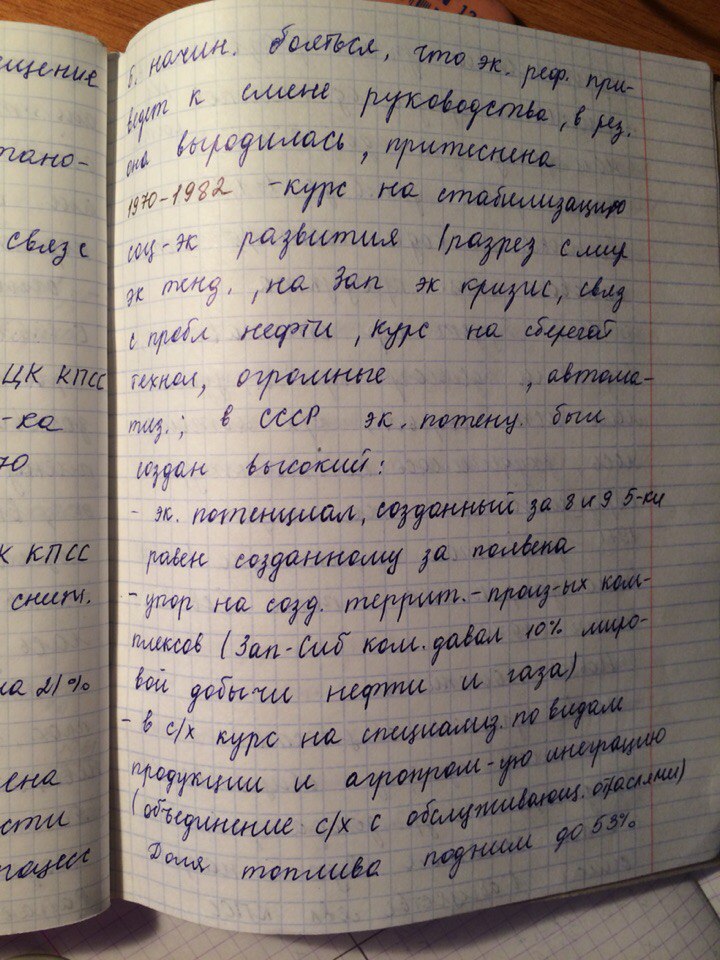 ещение
тано-
связ с
ЦК КПСС
-ка
70
К КПСС
сниж.
на 21%
ена
сти
роцесс
б. начин. бояться, что эк. реф. при-
ведет к смене руководства, в рез.
она выродилась, притеснена
1970-1982 - курс на стабилизацию
соц-эк развития (разрез с мир
эк тенд., на Зап эк кризис, связ
с пробл нефти, курс на сберегат
технол, огромные , автома-
тиз.; в СССР эк. потенц. был
создан высокий:
- эк. потенциал, созданный за 8 и 9 5-ки
равен созданному за полвека
- упор на созд. террит.-произ-ых ком-
плексов (Зап-Сиб ком. давал 10% миро-
вой добычи нефти и газа)
- в с/х курс на специализ. по видам
продукции и агропром-ую инеграцию
(объединение с/х с обслуживающ. отраслями)
Доля топлива подним до 53%